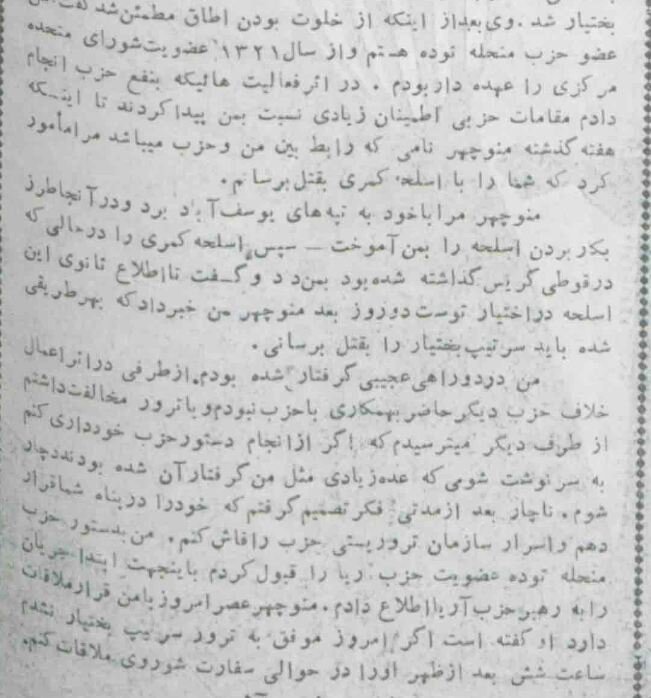 بختیار شد. وی بعداز اینکه از خلوت بودن اطاق مطمئن شد گفت من
عضو حزب منحله توده هستم واز سال ۱۳۲۱ عضویت شورای متحده
مرکزی را عهده دار بودم. در اثر فعالیت هائیکه بنفع حزب انجام
دادم مقامات حزبی اطمینان زیادی نسبت بمن پیدا کردند تا اینکه
هفته گذشته منوچهر نامی که رابط بین من وحزب میباشد مرا مأمور
کرد که شما را با اسلحه کمری بقتل برسانم.
منوچهر مرا باخود به تپه های یوسف آباد برد ودر آنجا طرز
بکار بردن اسلحه را بمن آموخت – سپس اسلحه کمری را درحالی که
درقوطی گریس گذاشته شده بود بمن داد و گفت تا اطلاع ثانوی این
اسلحه دراختیار توست دوروز بعد منوچهر بمن خبر داد که بهر طریقی
شده باید سرتیپ بختیار را بقتل برسانی.
من در دوراهی عجیبی گرفتار شده بودم. ازطرفی دراثر اعمال
خلاف حزب دیگر حاضر بهمکاری باحزب نبودم و با ترور مخالفت داشتم
از طرف دیگر میترسیدم که اگر از انجام دستور حزب خودداری کنم
به سرنوشت شومی که عده زیادی مثل من گرفتار آن شده بودند دچار
شوم. ناچار بعد ازمدتی فکر تصمیم گرفتم که خودرا درپناه شما قرار
دهم و اسرار سازمان تروریستی حزب را فاش کنم. من بدستور حزب
منحله توده عضویت حزب آریا را قبول کردم باینجهت ابتدا جریان
را به رهبر حزب آریا اطلاع دادم. منوچهر عصر امروز بامن قرار ملاقات
دارد او گفته است اگر امروز موفق به ترور سرتیپ بختیار نشدم
ساعت شش بعد ازظهر اورا در حوالی سفارت شوروی ملاقات کنم.